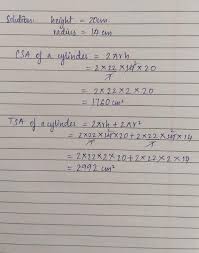 Solution: height = 20cm
radius = 14 cm
CSA of a cylinder = 2πrh
= 2×22×14²×20
7
= 2×22×2×20
= 1760 cm²
TSA of a cylinder = 2πrh + 2πr²
= 2×22×14²×20+2×22×14²×14
7 7
= 2×22×2×20+2×22×2×14
= 2992 cm²